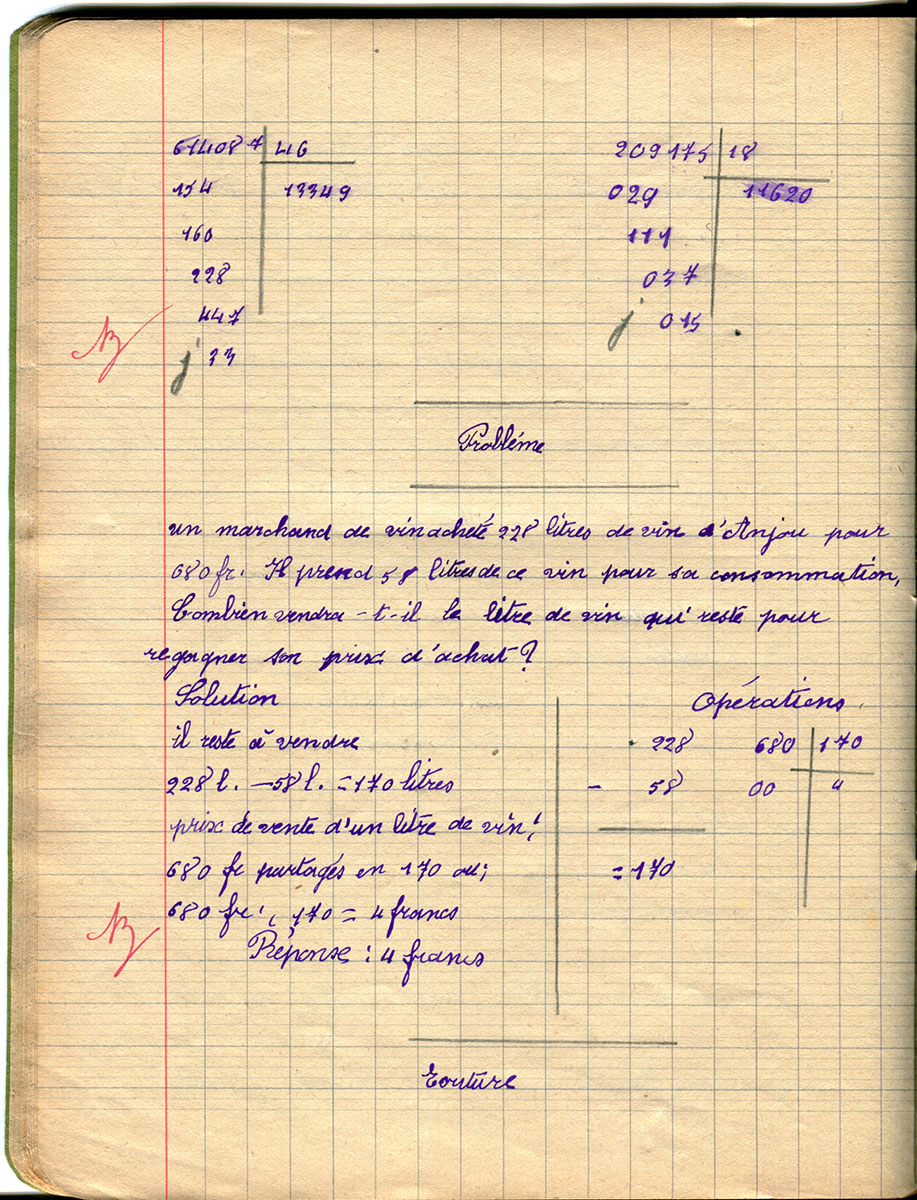 614087 46
154 13349
160
228
447
j 33
209175 18
029 11620
111
037
j 015
Probléme
un marchand de vin acheté 228 litres de vin d'Anjou pour
680 fr. Il prend 58 litres de ce vin pour sa consommation,
Combien vendra-t-il le litre de vin qui reste pour
regagner son prix d'achat?
Solution
il reste à vendre
228 l. - 58 l. = 170 litres
prix de vente d'un litre de vin!
680 fr partagés en 170 ou;
680 fr. : 170 = 4 francs
Réponse : 4 francs
Opérations.
228 680 170
- 58 00 4
= 170
B
B